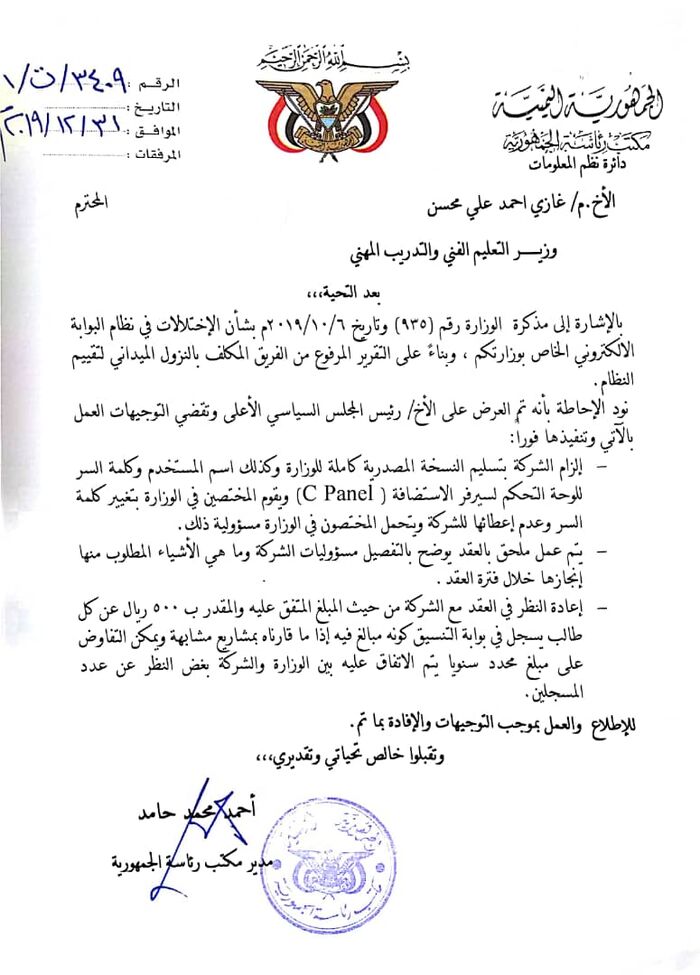 بسم الله الرحمن الرحيم
الجمهورية اليمنية
مكتب رئاسة الجمهورية
دائرة نظم المعلومات
الرقم : ٣٤٠٩/ت/١
التاريخ :
الموافق : ٢٠١٩/١٢/٣١م
المرفقات :
الأخ.م/ غازي احمد علي محسن المحترم
وزيـــر التعليم الفني والتدريب المهني
بعد التحية،،،
بالإشارة إلى مذكرة الوزارة رقم (٩٣٥) وتاريخ ٢٠١٩/١٠/٦م بشأن الإختلالات في نظام البوابة
الالكتروني الخاص بوزارتكم ، وبناءً على التقرير المرفوع من الفريق المكلف بالنزول الميداني لتقييم
النظام.
نود الإحاطة بأنه تم العرض على الأخ/ رئيس المجلس السياسي الأعلى وتقضي التوجيهات العمل
بالآتي وتنفيذها فوراً:
– إلزام الشركة بتسليم النسخة المصدرية كاملة للوزارة وكذلك اسم المستخدم وكلمة السر
للوحة التحكم لسيرفر الاستضافة ( C Panel) ويقوم المختصين في الوزارة بتغيير كلمة
السر وعدم إعطائها للشركة ويتحمل المختصون في الوزارة مسؤولية ذلك.
– يتم عمل ملحق بالعقد يوضح بالتفصيل مسؤوليات الشركة وما هي الأشياء المطلوب منها
إنجازها خلال فترة العقد .
– إعادة النظر في العقد مع الشركة من حيث المبلغ المتفق عليه والمقدر ب ٥٠٠ ريال عن كل
طالب يسجل في بوابة التنسيق كونه مبالغ فيه إذا ما قارناه بمشاريع مشابهة ويمكن التفاوض
على مبلغ محدد سنويا يتم الاتفاق عليه بين الوزارة والشركة بغض النظر عن عدد
المسجلين.
للإطلاع والعمل بموجب التوجيهات والإفادة بما تم.
وتقبلوا خالص تحياتي وتقديري،،،
أحمد محمد حامد
مدير مكتب رئاسة الجمهورية
مكتب رئاسة الجمهورية